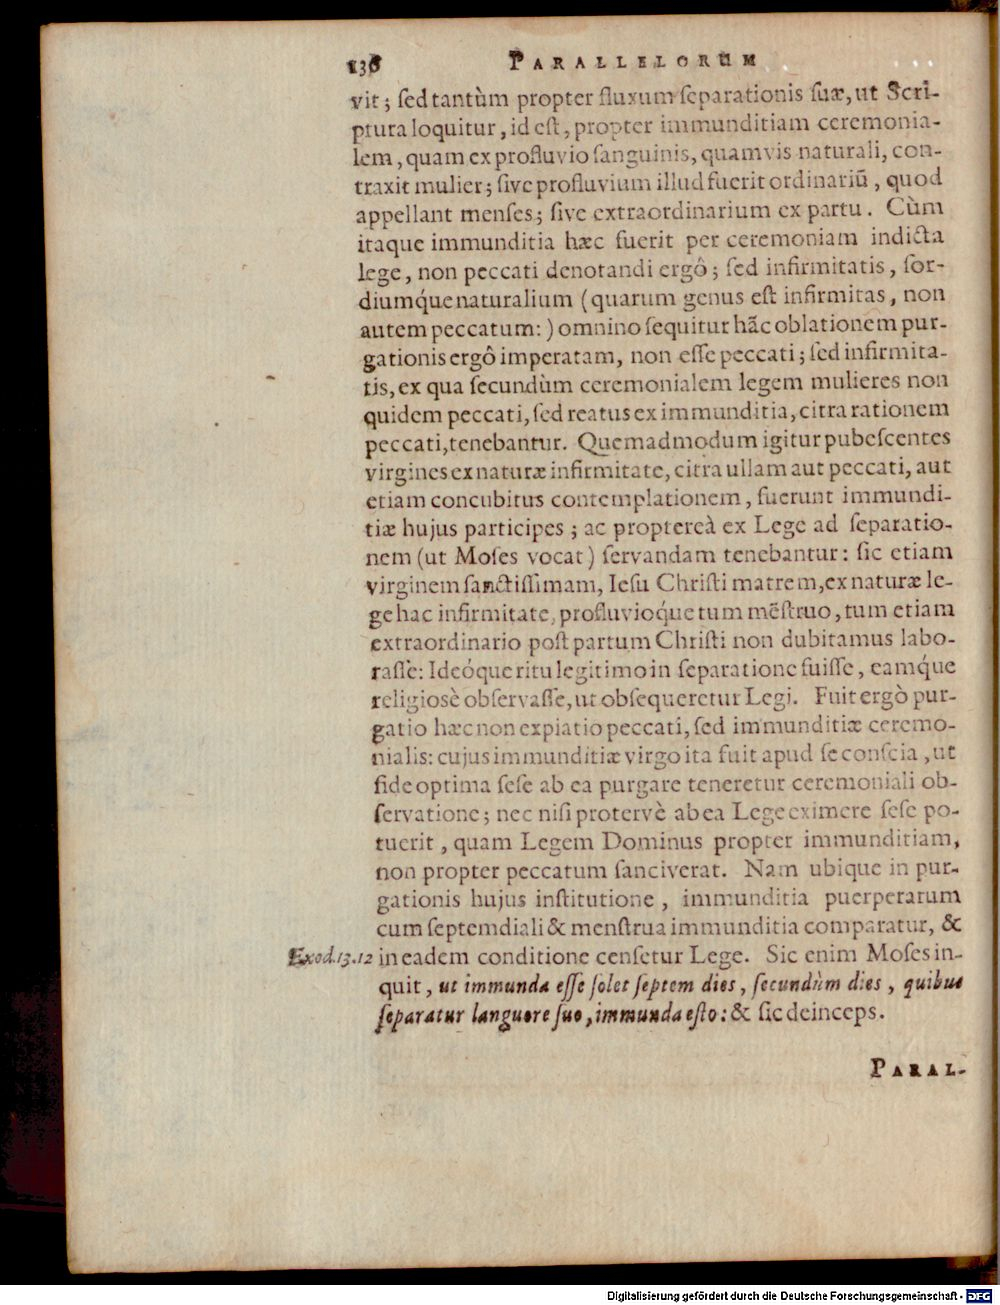 136 PARALLELORUM
vit; ſed tantùm propter fluxum ſeparationis ſuæ, ut Scri-
ptura loquitur, id eſt, propter immunditiam ceremonia-
lem, quam ex profluvio ſanguinis, quamvis naturali, con-
traxit mulier; ſive profluvium illud fuerit ordinariũ, quod
appellant menſes; ſive extraordinarium ex partu. Cùm
itaque immunditia hæc fuerit per ceremoniam indicta
lege, non peccati denotandi ergô; ſed infirmitatis, ſor-
diumq́ue naturalium (quarum genus eſt infirmitas, non
autem peccatum:) omnino ſequitur hãc oblationem pur-
gationis ergô imperatam, non eſſe peccati; ſed infirmita-
tis, ex qua ſecundùm ceremonialem legem mulieres non
quidem peccati, ſed reatus ex immunditia, citra rationem
peccati, tenebantur. Quemadmodum igitur pubeſcentes
virgines ex naturæ infirmitate, citra ullam aut peccati, aut
etiam concubitus contemplationem, fuerunt immundi-
tiæ hujus participes; ac proptereà ex Lege ad ſeparatio-
nem (ut Moſes vocat) ſervandam tenebantur: ſic etiam
virginem ſanctiſſimam, Ieſu Chriſti matrem, ex naturæ le-
ge hac infirmitate, profluvioq́ue tum mẽſtruo, tum etiam
extraordinario poſt partum Chriſti non dubitamus labo-
raſſe: Ideóque ritu legitimo in ſeparatione fuiſſe, eamq́ue
religioſè obſervaſſe, ut obſequeretur Legi. Fuit ergò pur-
gatio hæc non expiatio peccati, ſed immunditiæ ceremo-
nialis: cujus immunditiæ virgo ita fuit apud ſe conſcia, ut
fide optima ſeſe ab ea purgare teneretur ceremoniali ob-
ſervatione; nec niſi protervè ab ea Lege eximere ſeſe po-
tuerit, quam Legem Dominus propter immunditiam,
non propter peccatum ſanciverat. Nam ubique in pur-
gationis hujus inſtitutione, immunditia puerperarum
cum ſeptemdiali & menſtrua immunditia comparatur, &
Exod.13.12 in eadem conditione cenſetur Lege. Sic enim Moſes in-
quit, ut immunda eſſe ſolet ſeptem dies, ſecundùm dies, quibus
ſeparatur languore ſuo, immunda eſto: & ſic deinceps.
PARAL-
Digitalisierung gefördert durch die Deutsche Forschungsgemeinschaft - DFG